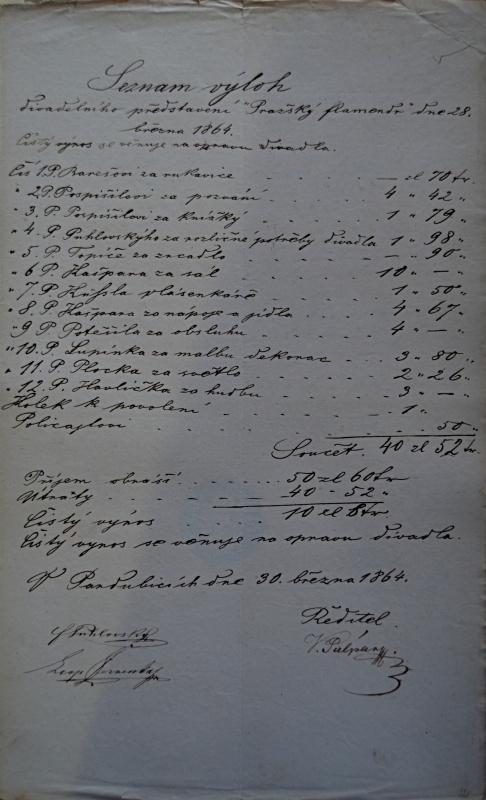 Seznam výloh
divadelního představení "Pražský flamendr" dne 28.
března 1864.
Čistý výnos se věnuje na opravu divadla.
Čís 1. P. Barešovi za rukavice — zl 70 kr.
" 2. P. Pospíšilovi za pozvání 4 " 42 "
" 3. P. Pospíšilovi za knížky 1 " 79 "
" 4. P. Puhlovskýho za rozličné potřeby divadla 1 " 98 "
" 5. P. Topiče za zrcadlo — " 90 "
" 6 P. Kašpara za sál 10 " — "
" 7 P. vlásenkáře 1 " 50 "
" 8. P. Kašpara za nápoje a jídla 4 " 67 "
" 9 P. Potěšila za obsluhu 4 " — "
" 10. P. Lupínka za malbu dekorac 3 " 80 "
" 11. P. Plocka za světlo 2 " 26 "
" 12. P. Havlíčka za hudbu 3 " — "
Kolek k povolení 1 "
Policajtovi 50 "
Součet. 40 zl 52 kr.
Příjem obnáší 50 zl 60 kr
Útraty 40 - 52 "
Čistý výnos 10 zl 8 kr
Čistý výnos se věnuje na opravu divadla.
V Pardubicích dne 30. března 1864.
Ředitel